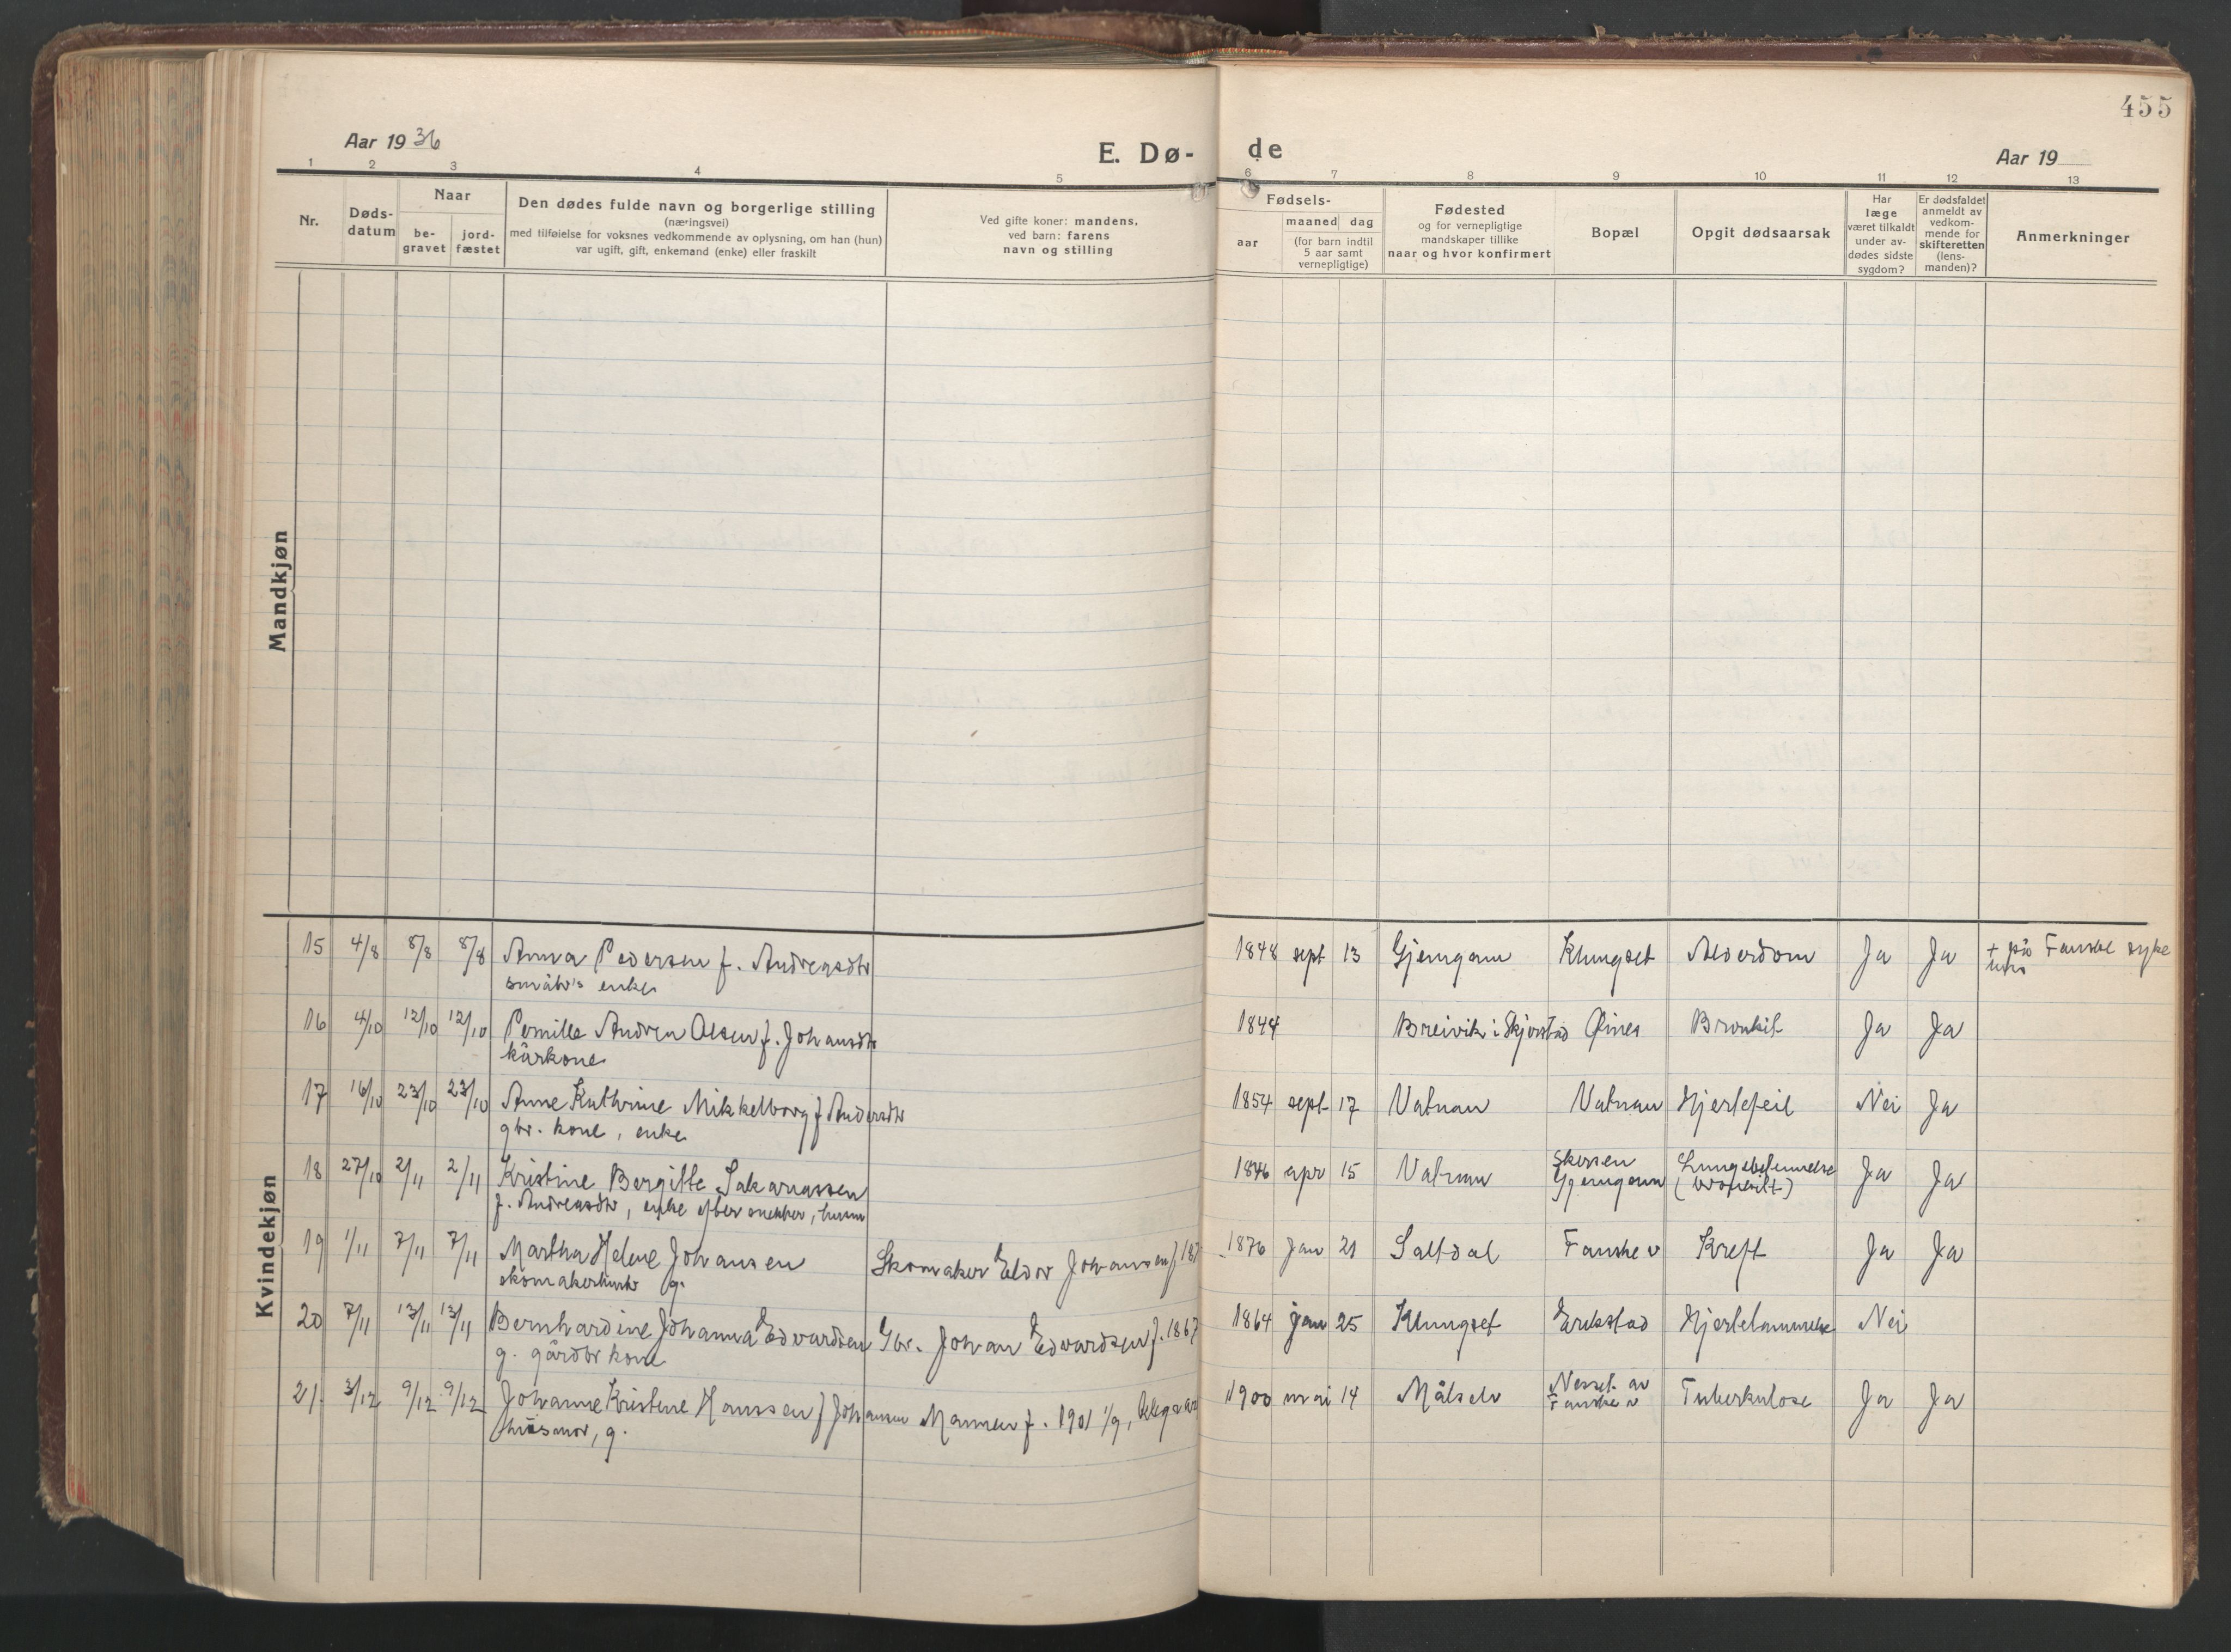 455
Aar 1936
E. Dø-
de
Aar 19
1 2 3 4 5 6 7 8 9 10 11 12 13
Nr.
Døds-
datum
Naar
be-
gravet
jord-
fæstet
Den dødes fulde navn og borgerlige stilling
(næringsvei)
med tilføielse for voksnes vedkommende av oplysning, om han (hun)
var ugift, gift, enkemand (enke) eller fraskilt
Ved gifte koner: mandens,
ved barn: farens
navn og stilling
Fødsels-
aar
maaned dag
(for barn indtil
5 aar samt
vernepligtige)
Fødested
og for vernepligtige
mandskaper tillike
naar og hvor konfirmert
Bopæl
Opgit dødsaarsak
Har
læge
været tilkaldt
under av-
dødes sidste
sygdom?
Er dødsfaldet
anmeldt av
vedkom-
mende for
skifteretten
(lens-
manden)?
Anmerkninger
Mandkjøn
Kvindekjøn
15 4/8 8/8 8/8 Anna Pedersen f. Andreasdtr 1848 sept 13 Gjemgam Klungset Alderdom Ja Ja + på Fauske syke
småbr's enke hus
16 4/10 12/10 12/10 Pernille Andrea Olsen f. Johansdtr 1844 Breivik i Skjerstad Øines Bronkit Ja Ja
kårkone
17 16/10 23/10 23/10 Anne Kathrine Mikkelborg f Andersdtr 1854 sept 17 Vatnan Vatnan Hjertefeil Nei Ja
gbr. kone, enke
18 27/10 2/11 2/11 Kristine Bergitte Sakariassen 1846 apr 15 Vatnan Skossen Lungebetennelse Ja Ja
f. Andreasdtr, enke efter snekker, Gjemgam
19 1/11 7/11 7/11 Martha Helene Johansen Skomaker Eldor Johansen f 187 1876 jan 21 Saltdal Fauske v Kreft Ja Ja
g.
20 7/11 13/11 13/11 Bernhardine Johanna Edvardsen Gbr. Johan Edvardsen f. 1867 1864 jan 25 Klungset Erikstad Hjertelammelse Nei
g. gårdbr kone
21. 3/12 9/12 9/12 Johanne Kristine Hanssen f Johansen Mannen f. 1901 1/9, 1900 mai 14 Målselv Nesset av Tuberkulose Ja Ja
husmor, g. Fauske v